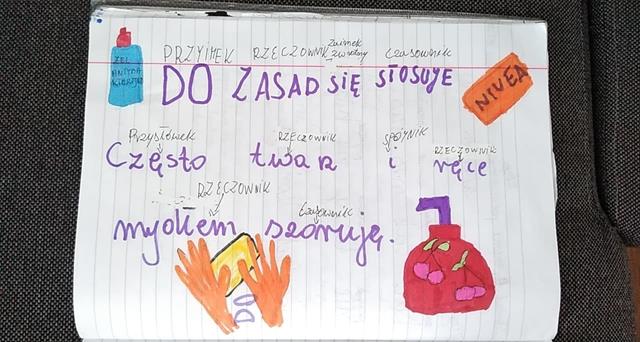 ŻEL ANTYBAKTERYJNY
PRZYIMEK RZECZOWNIK zaimek zwrotny czasownik
DO ZASAD SIĘ STOSUJE
NIVEA
Przysłówek RZECZOWNIK SPÓJNIK RZECZOWNIK
Często twarz i ręce
RZECZOWNIK Czasownik
mydłem szoruję.
DO